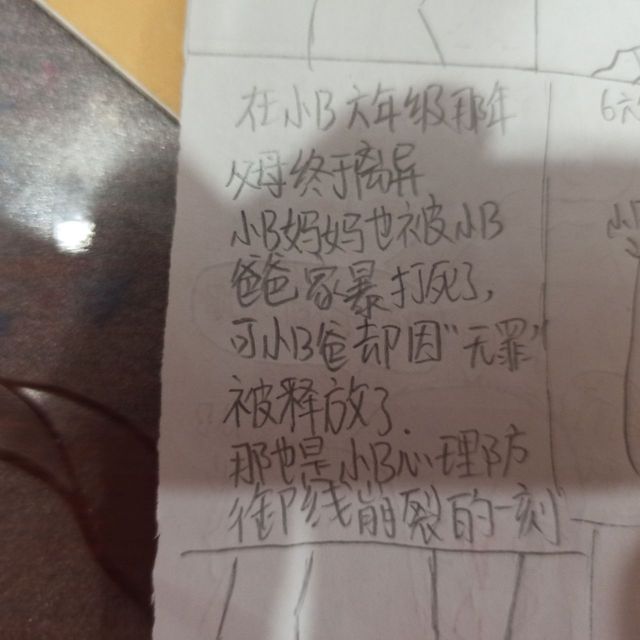 在小B六年级那年
父母终于离异
小B妈妈也被小B
爸爸家暴打死了，
可小B爸却因"无罪"
被释放了.
那也是小B心理防
御线崩裂的一刻
6